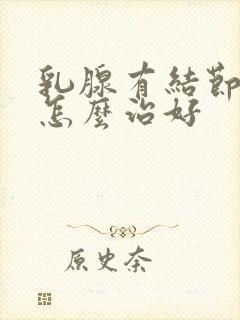 乳腺有結節
怎麼治好
原史奈